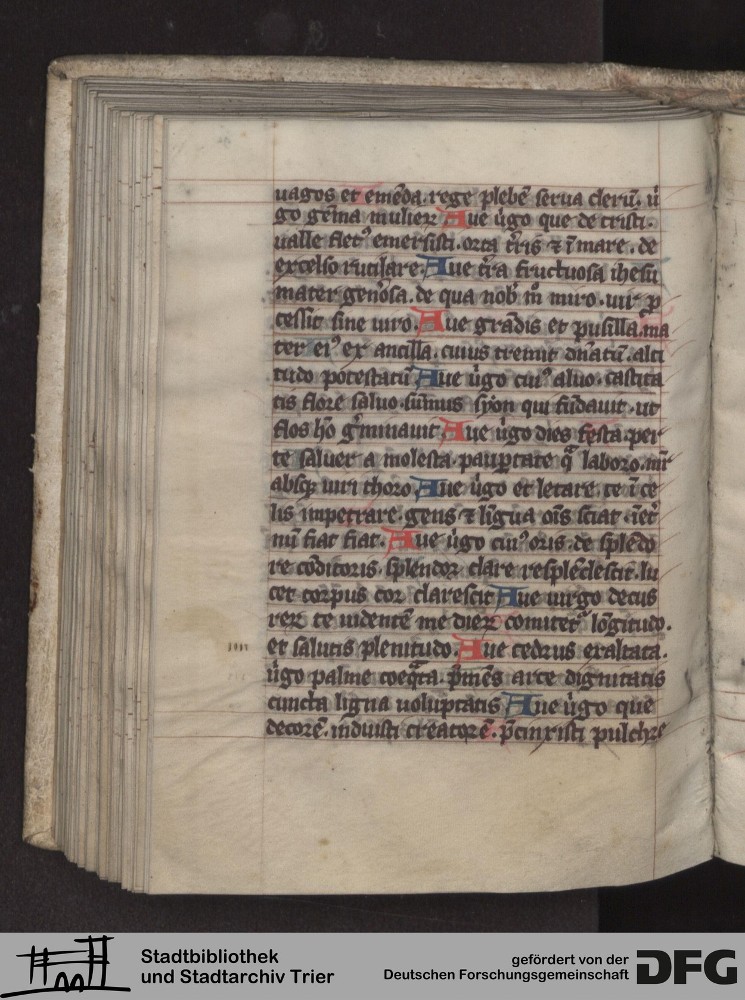 uagos et emēda. rege plebē serua clerū. u̇
go gēma mulieꝝ Aue u̇go que de tristi.
ualle fletꝰ emersisti. orta t̄ris ⁊ ī mare. de
excelso rutilare. Aue t̄ra fructuosa ihesu
mater gen̄osa. de qua nob̄ m̄ miro. uir p̱
cessit sine uiro. Aue grādis et pusilla. ma
ter eiꝰ ex ancilla. cuius tremit dn̄atū. alti
tudo potestatū Aue u̇go cuiꝰ aluo. castita
tis flore saluo. sūmus syon qui fūdauit. ut
flos hō ḡminauit. Aue u̇go dies festa. per
te saluer a molesta. paup̱tate qͣ laboro. nr̄
absqꝫ uiri thoro. Aue u̇go et letare. te ī ce
lis impetrare. gens ⁊ līgua oīs sciat. īet̄
nū fiat fiat. Aue u̇go cuiꝰ oris. de splēdo
re cōditoris. splendor clare resplēdescit. lu
cet corpus cor clarescit Aue uirgo decus
rex te uidentē me dieꝝ comitetͬ lōgitudo.
et salutis plenitudo. Aue cedrus exaltata.
u̇go palme coeqͣta. p̄mēs arce dignitatis
cuncta ligna uoluptatis Aue u̇go que
decorē. induisti creatorē. p̄cinxisti pulchre
Stadtbibliothek
und Stadtarchiv Trier
gefördert von der
Deutschen Forschungsgemeinschaft
DFG